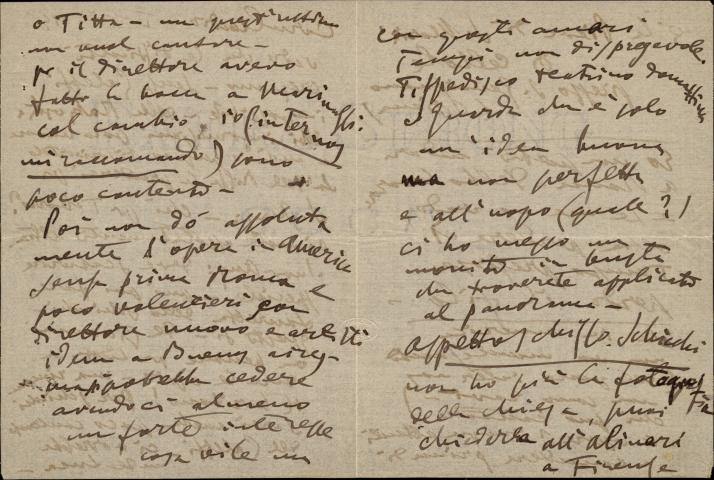 o Titta – ma quest'ultimo
non vuol cantare –
per il direttore avevo
fatto la bocca a Marinuzzi:
col cambio, io (inter nos
mi raccomando) sono
poco contento –
Poi non dò assoluta
mente l'opera in America
senza prima Roma e
poco volentieri con
direttore nuovo e artisti
idem a Buenos aires –
ma si potrebbe cedere
avendoci almeno
un forte interesse
cosa vile ma
con questi amari
tempi non disprezzevole.
Ti spedisco teatrino domattina
e guarda che è solo
un'idea buona
ma non perfetta
e all'uopo (quale?)
ci ho messo un
monito in busta
che troverete applicato
al panorama –
aspetto schizzo. Schicchi
non ho più la fotograf
fia
della chiesa, puoi
chiederla all'alinari
a Firenze